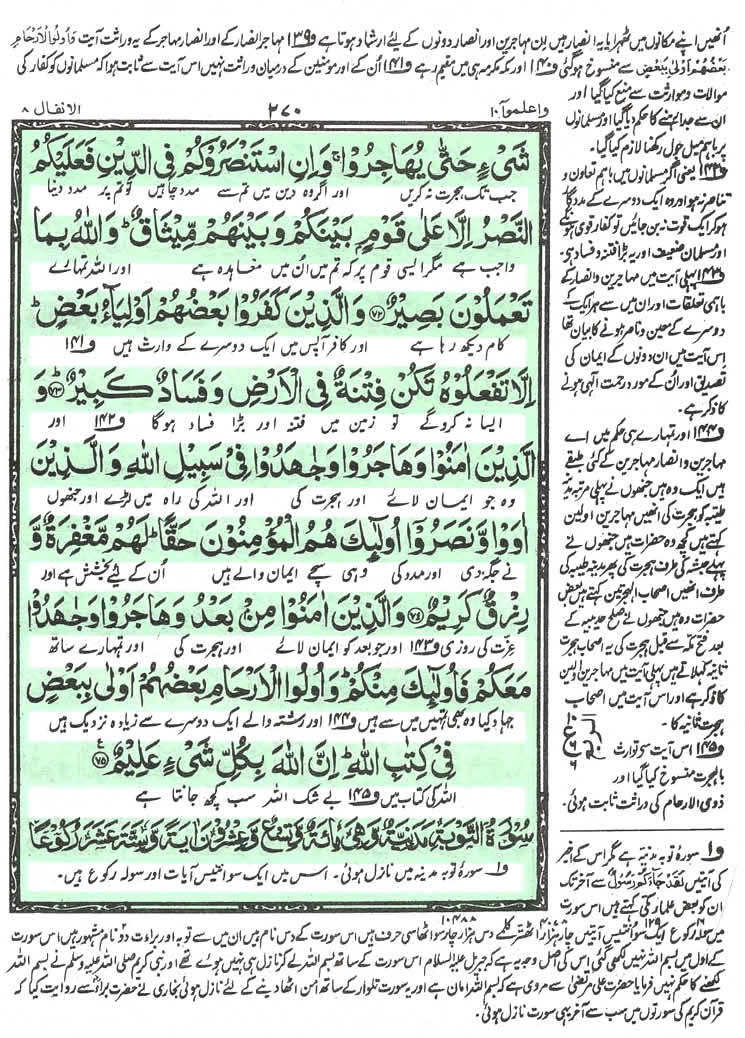 اُنھیں اپنے مکانوں میں ٹھہرایا یہ انصار ہیں اِن مہاجرین اور انصار دونوں کے لیٔے ارشاد ہوتا ہے و۱۳۹ مہاجر انصار کے اور انصار مہاجر کے یہ وراثت آیت وَاُولُوا الْاَرْحَامِ
بَعْضُهُمْ اَوْلٰى بِبَعْضٍ سے منسوخ ہوگئی و۱۴۰ اور مکہ مکرمہ ہی میں مقیم رہے و۱۴۱ اُن کے اور مومنین کے درمیان وراثت نہیں اس آیت سے ثابت ہوا کہ مسلمانوں کو کفار کی
موالات و موارثت سے منع کیا گیا اور
ان سے جدا رہنے کا حکم دیا گیا اور مسلمانوں
پر باہم میل جول رکھنا لازم کیا گیا۔
و۱۴۲ یعنی اگر مسلمانوں میں باہم تعاون و
تناصر نہ ہو اور وہ ایک دوسرے کے مددگار
ہوکر ایک قوت نہ بن جائیں تو کفار قوی ہونگے
اور مسلمان ضعیف اور یہ بڑا فتنہ و فساد ہے۔
و۱۴۳ پہلی آیت میں مہاجرین و انصار کے
باہمی تعلقات اور ان میں سے ہر ایک کے
دوسرے کے معین و ناصر ہونے کا بیان تھا
اس آیت میں ان دونوں کے ایمان کی
تصدیق اور ان کے مورد رحمت الٰہی ہونے
کا ذکر ہے۔
و۱۴۴ اور تمہارے ہی حکم میں اے
مہاجرین و انصار مہاجرین کے کئی طبقے
ہیں ایک وہ ہیں جنھوں نے پہلی مرتبہ مدینہ
طیبہ کو ہجرت کی انھیں مہاجرین اولین
کہتے ہیں کچھ وہ حضرات ہیں جنھوں نے
پہلے حبشہ کی طرف ہجرت کی پھر مدینہ طیبہ کی
طرف انھیں اصحاب الہجرتین کہتے ہیں بعض
حضرات وہ ہیں جنھوں نے صلح حدیبیہ کے
بعد فتح مکہ سے قبل ہجرت کی یہ اصحاب ہجرت
ثانیہ کہلاتے ہیں پہلی آیت میں مہاجرین اولین
کا ذکر ہے اور اس آیت میں اصحاب
ہجرت ثانیہ کا۔
و۱۴۵ اس آیت سے توارث
بالہجرت منسوخ کیا گیا اور
ذوی الارحام کی وراثت ثابت ہوئی۔
واعلموا ۱۰
۲۷۰
الانفال ۸
شَیْءٍ حَتّٰى یُهَاجِرُوْاۚ وَاِنِ اسْتَنْصَرُوْكُمْ فِی الدِّیْنِ فَعَلَیْكُمُ
جب تک ہجرت نہ کریں اور اگر وہ دین میں تم سے مدد چاہیں تو تم پر مدد دینا
النَّصْرُ اِلَّا عَلٰى قَوْمٍۭ بَیْنَكُمْ وَبَیْنَهُمْ مِّیْثَاقٌؕ وَاللّٰهُ بِمَا
واجب ہے مگر ایسی قوم پر کہ تم میں اُن میں معاہدہ ہے اور اللہ تمہارے
تَعْمَلُوْنَ بَصِیْرٌ ﴿۷۲﴾ وَالَّذِیْنَ كَفَرُوْا بَعْضُهُمْ اَوْلِیَآءُ بَعْضٍؕ
کام دیکھ رہا ہے اور کافر آپس میں ایک دوسرے کے وارث ہیں و۱۴۱
اِلَّا تَفْعَلُوْهُ تَكُنْ فِتْنَةٌ فِی الْاَرْضِ وَفَسَادٌ كَبِیْرٌؕ ﴿۷۳﴾ وَ
ایسا نہ کرو گے تو زمین میں فتنہ اور بڑا فساد ہوگا و۱۴۲ اور
الَّذِیْنَ اٰمَنُوْا وَهَاجَرُوْا وَجٰهَدُوْا فِیْ سَبِیْلِ اللّٰهِ وَالَّذِیْنَ
وہ جو ایمان لائے اور ہجرت کی اور اللہ کی راہ میں لڑے اور جنھوں
اٰوَوْا وَّنَصَرُوْۤا اُولٰٓئِكَ هُمُ الْمُؤْمِنُوْنَ حَقًّاؕ لَهُمْ مَّغْفِرَةٌ وَّ
نے جگہ دی اور مدد کی وہی سچے ایمان والے ہیں اُن کے لیٔے بخشش ہے اور
رِزْقٌ كَرِیْمٌ ﴿۷۴﴾ وَالَّذِیْنَ اٰمَنُوْا مِنْۢ بَعْدُ وَهَاجَرُوْا وَجٰهَدُوْا
عزت کی روزی و۱۴۳ اور جو بعد کو ایمان لائے اور ہجرت کی اور تمہارے ساتھ
مَعَكُمْ فَاُولٰٓئِكَ مِنْكُمْؕ وَاُولُوا الْاَرْحَامِ بَعْضُهُمْ اَوْلٰى بِبَعْضٍ
جہاد کیا وہ بھی تمہیں میں سے ہیں و۱۴۴ اور رشتہ والے ایک دوسرے سے زیادہ نزدیک ہیں
فِیْ كِتٰبِ اللّٰهِؕ اِنَّ اللّٰهَ بِكُلِّ شَیْءٍ عَلِیْمٌ ﴿۷۵﴾
اللہ کی کتاب میں و۱۴۵ بے شک اللہ سب کچھ جانتا ہے
سُوْرَةُ التَّوْبَةِ مَدَنِیَّةٌ وَّهِیَ مِائَةٌ وَّتِسْعٌ وَّعِشْرُوْنَ اٰیَةً وَّسِتَّةَ عَشَرَ رُكُوْعًا
و۱ سورۂ توبہ مدینہ میں نازل ہوئی۔ اس میں ایک سو انتیس آیات اور سولہ رکوع ہیں۔
و۱ سورۂ توبہ مدنیہ ہے مگر اس کے اخیر
کی آیتیں لَقَدْ جَآءَكُمْ رَسُوْلٌ سے آخر تک
ان کو بعض علماء مکی کہتے ہیں اس سورت
میں سولہ رکوع ایک سو انتیس آیتیں چار ہزار اٹھتر کلمے دس ہزار چار سو اٹھاسی حرف ہیں اس سورت کے دس نام ہیں ان میں سے توبہ اور براءت دو نام مشہور ہیں اس سورت
کے اول میں بسم اللہ نہیں لکھی گئی اس کی اصل وجہ یہ ہے کہ جبریل علیہ السلام اس سورت کے ساتھ بسم اللہ لے کر نازل ہی نہیں ہوئے تھے اور نبی کریم صلی اللہ علیہ وسلم نے بسم اللہ
لکھنے کا حکم نہیں فرمایا حضرت علی مرتضیٰ سے مروی ہے کہ بسم اللہ امان ہے اور یہ سورت تلوار کے ساتھ امن اٹھا دینے کے لئے نازل ہوئی بخاری نے حضرت براء سے روایت کیا کہ
قرآن کریم کی سورتوں میں سب سے آخر یہی سورت نازل ہوئی۔